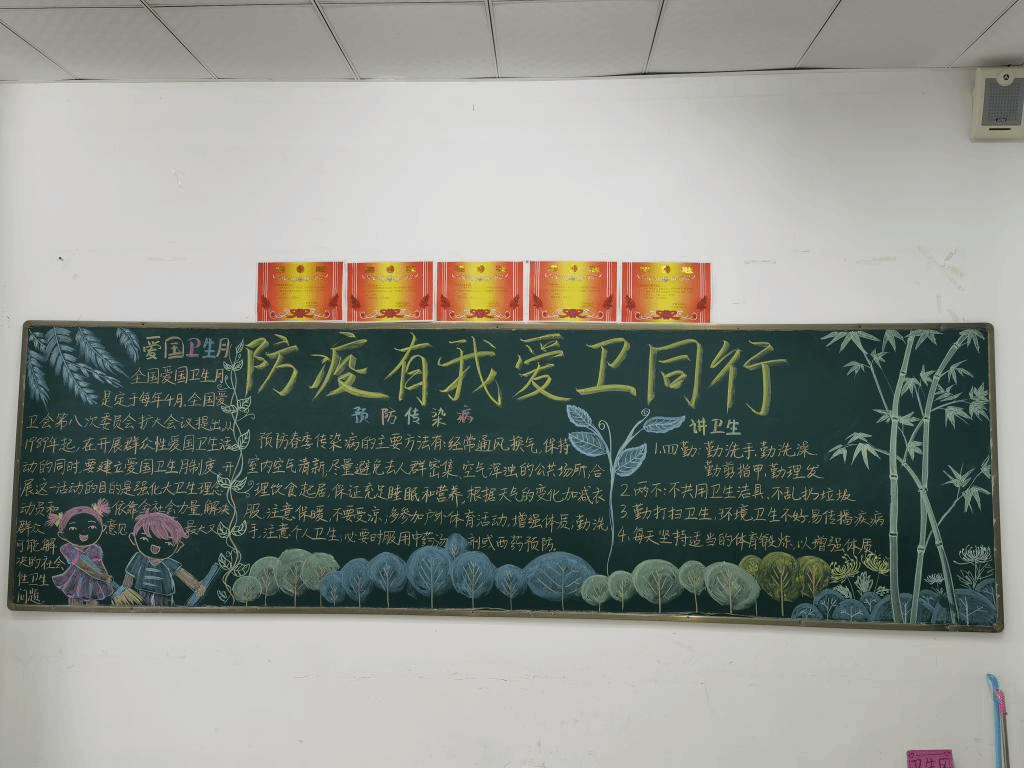 防疫有我爱卫同行
爱国卫生月
全国爱国卫生月
是定于每年4月,全国爱
卫会第八次委员会扩大会议提出,从
1989年起,在开展群众性爱国卫生活
动的同时,要建立爱国卫生月制度,开
展这一活动的目的是强化大卫生理念
动员和 依靠全社会力量,解决
群众 意见 最大又
可能解
决的社会
性卫生
问题
预防传染病
预防春季传染病的主要方法有:经常通风换气,保持
室内空气清新,尽量避免去人群密集、空气浑浊的公共场所,合
理饮食起居,保证充足睡眠和营养,根据天气的变化加减衣
服,注意保暖,不要受凉,多参加户外体育活动,增强体质,勤洗
手,注意个人卫生,必要时服用中药汤剂或西药预防.
讲卫生
1.四勤:勤洗手,勤洗澡,
勤剪指甲,勤理发
2.两不:不共用卫生洁具,不乱扔垃圾
3.勤打扫卫生,环境卫生不好,易传播疾病
4.每天坚持适当的体育锻炼,以增强体质
卫生区